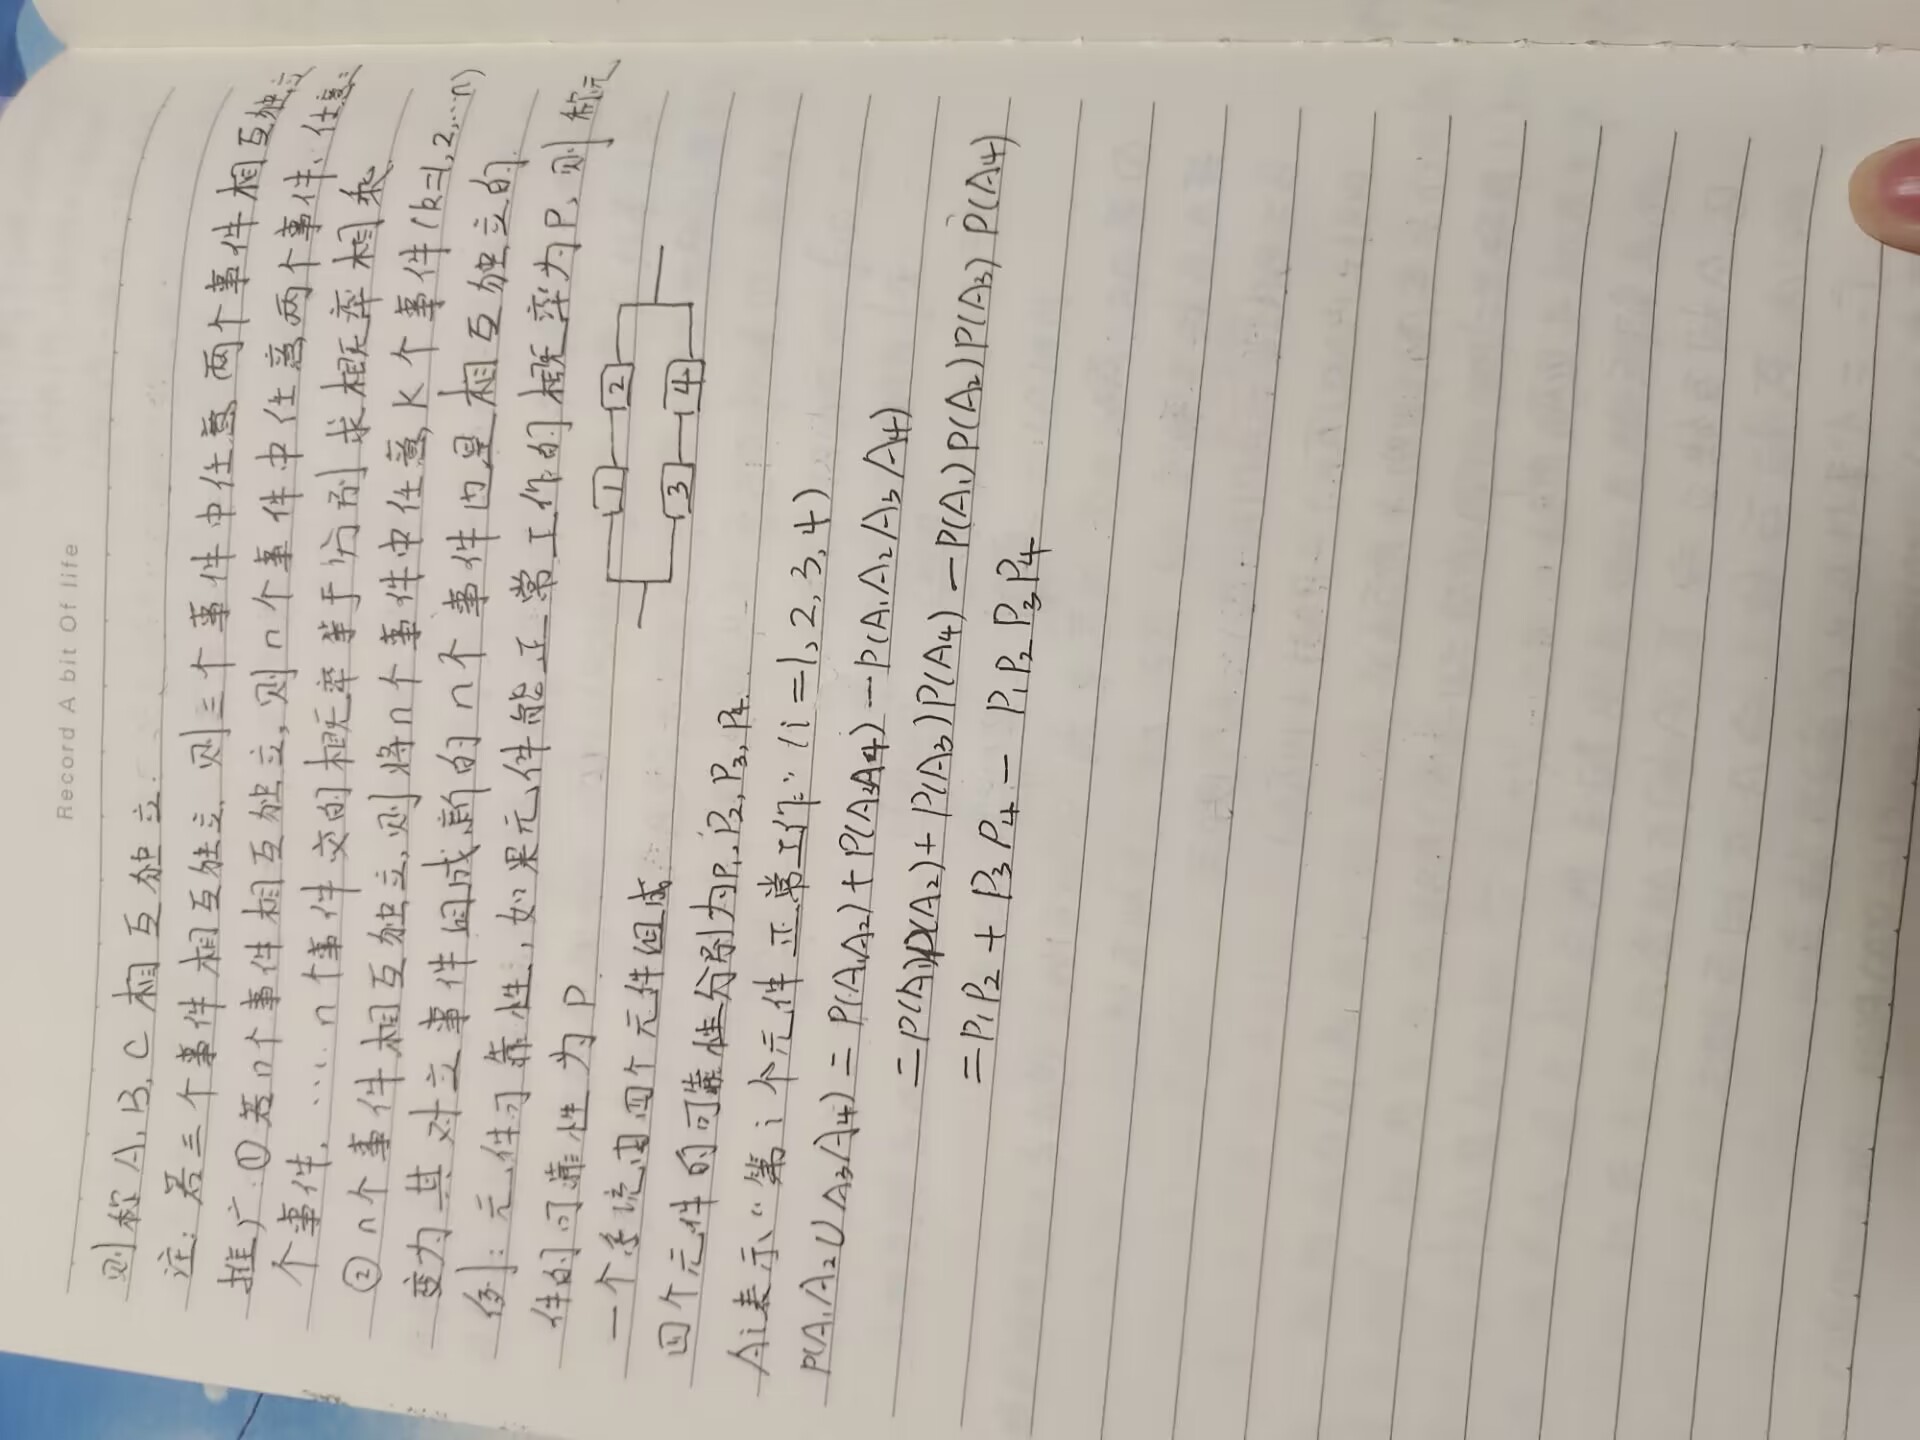 Record A bit Of life
则称A,B,C相互独立.
注:若三个事件相互独立,则三个事件中任意两个事件相互独立
推广:①若n个事件相互独立,则n个事件中任意两个事件、任意三
个事件,……n个事件交的概率等于分别求概率相乘
②n个事件相互独立,则将n个事件中任意K个事件(k=1,2,…n)
变为其对立事件,
成新的n个事件仍是相互独立的.
例:元件可靠性,如果元件能正常工作的概率为P,则称元
件的可靠性为P
一个系统由四个元件组成
1 2
3 4
四个元件的可靠性分别为P1,P2,P3,P4.
Ai表示"第i个元件正常工作"(i=1,2,3,4)
P(A1A2∪A3A4)=P(A1A2)+P(A3A4)-P(A1A2A3A4)
=P(A1)P(A2)+P(A3)P(A4)-P(A1)P(A2)P(A3)P(A4)
=P1P2+P3P4-P1P2P3P4